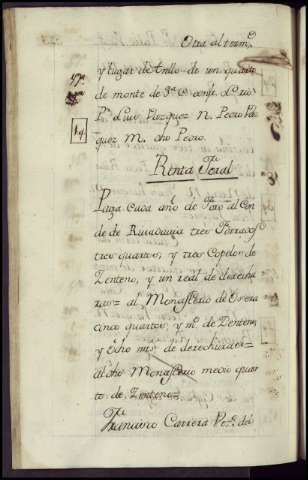 Otra al term.º
y lugar de Trillo de un quarto
de monte de 3ª C. confr. L. rio
P. Luis Vazquez N. Pedro Vaz
quez M. dho Pedro.
Renta Foral
Paga cada año de Foro al Con
de de Ruvadavia tres Ferrados
tres quartos, y tres Copelos de
Zenteno, y un real de derechu
ras= al Monasterio de Osera
cinco quartos, y m.º de Zenteno,
y Ocho mrs de derechuras=
al dho Monasterio medio quar
to de Zenteno=
Francisco Carrera Vez.º del